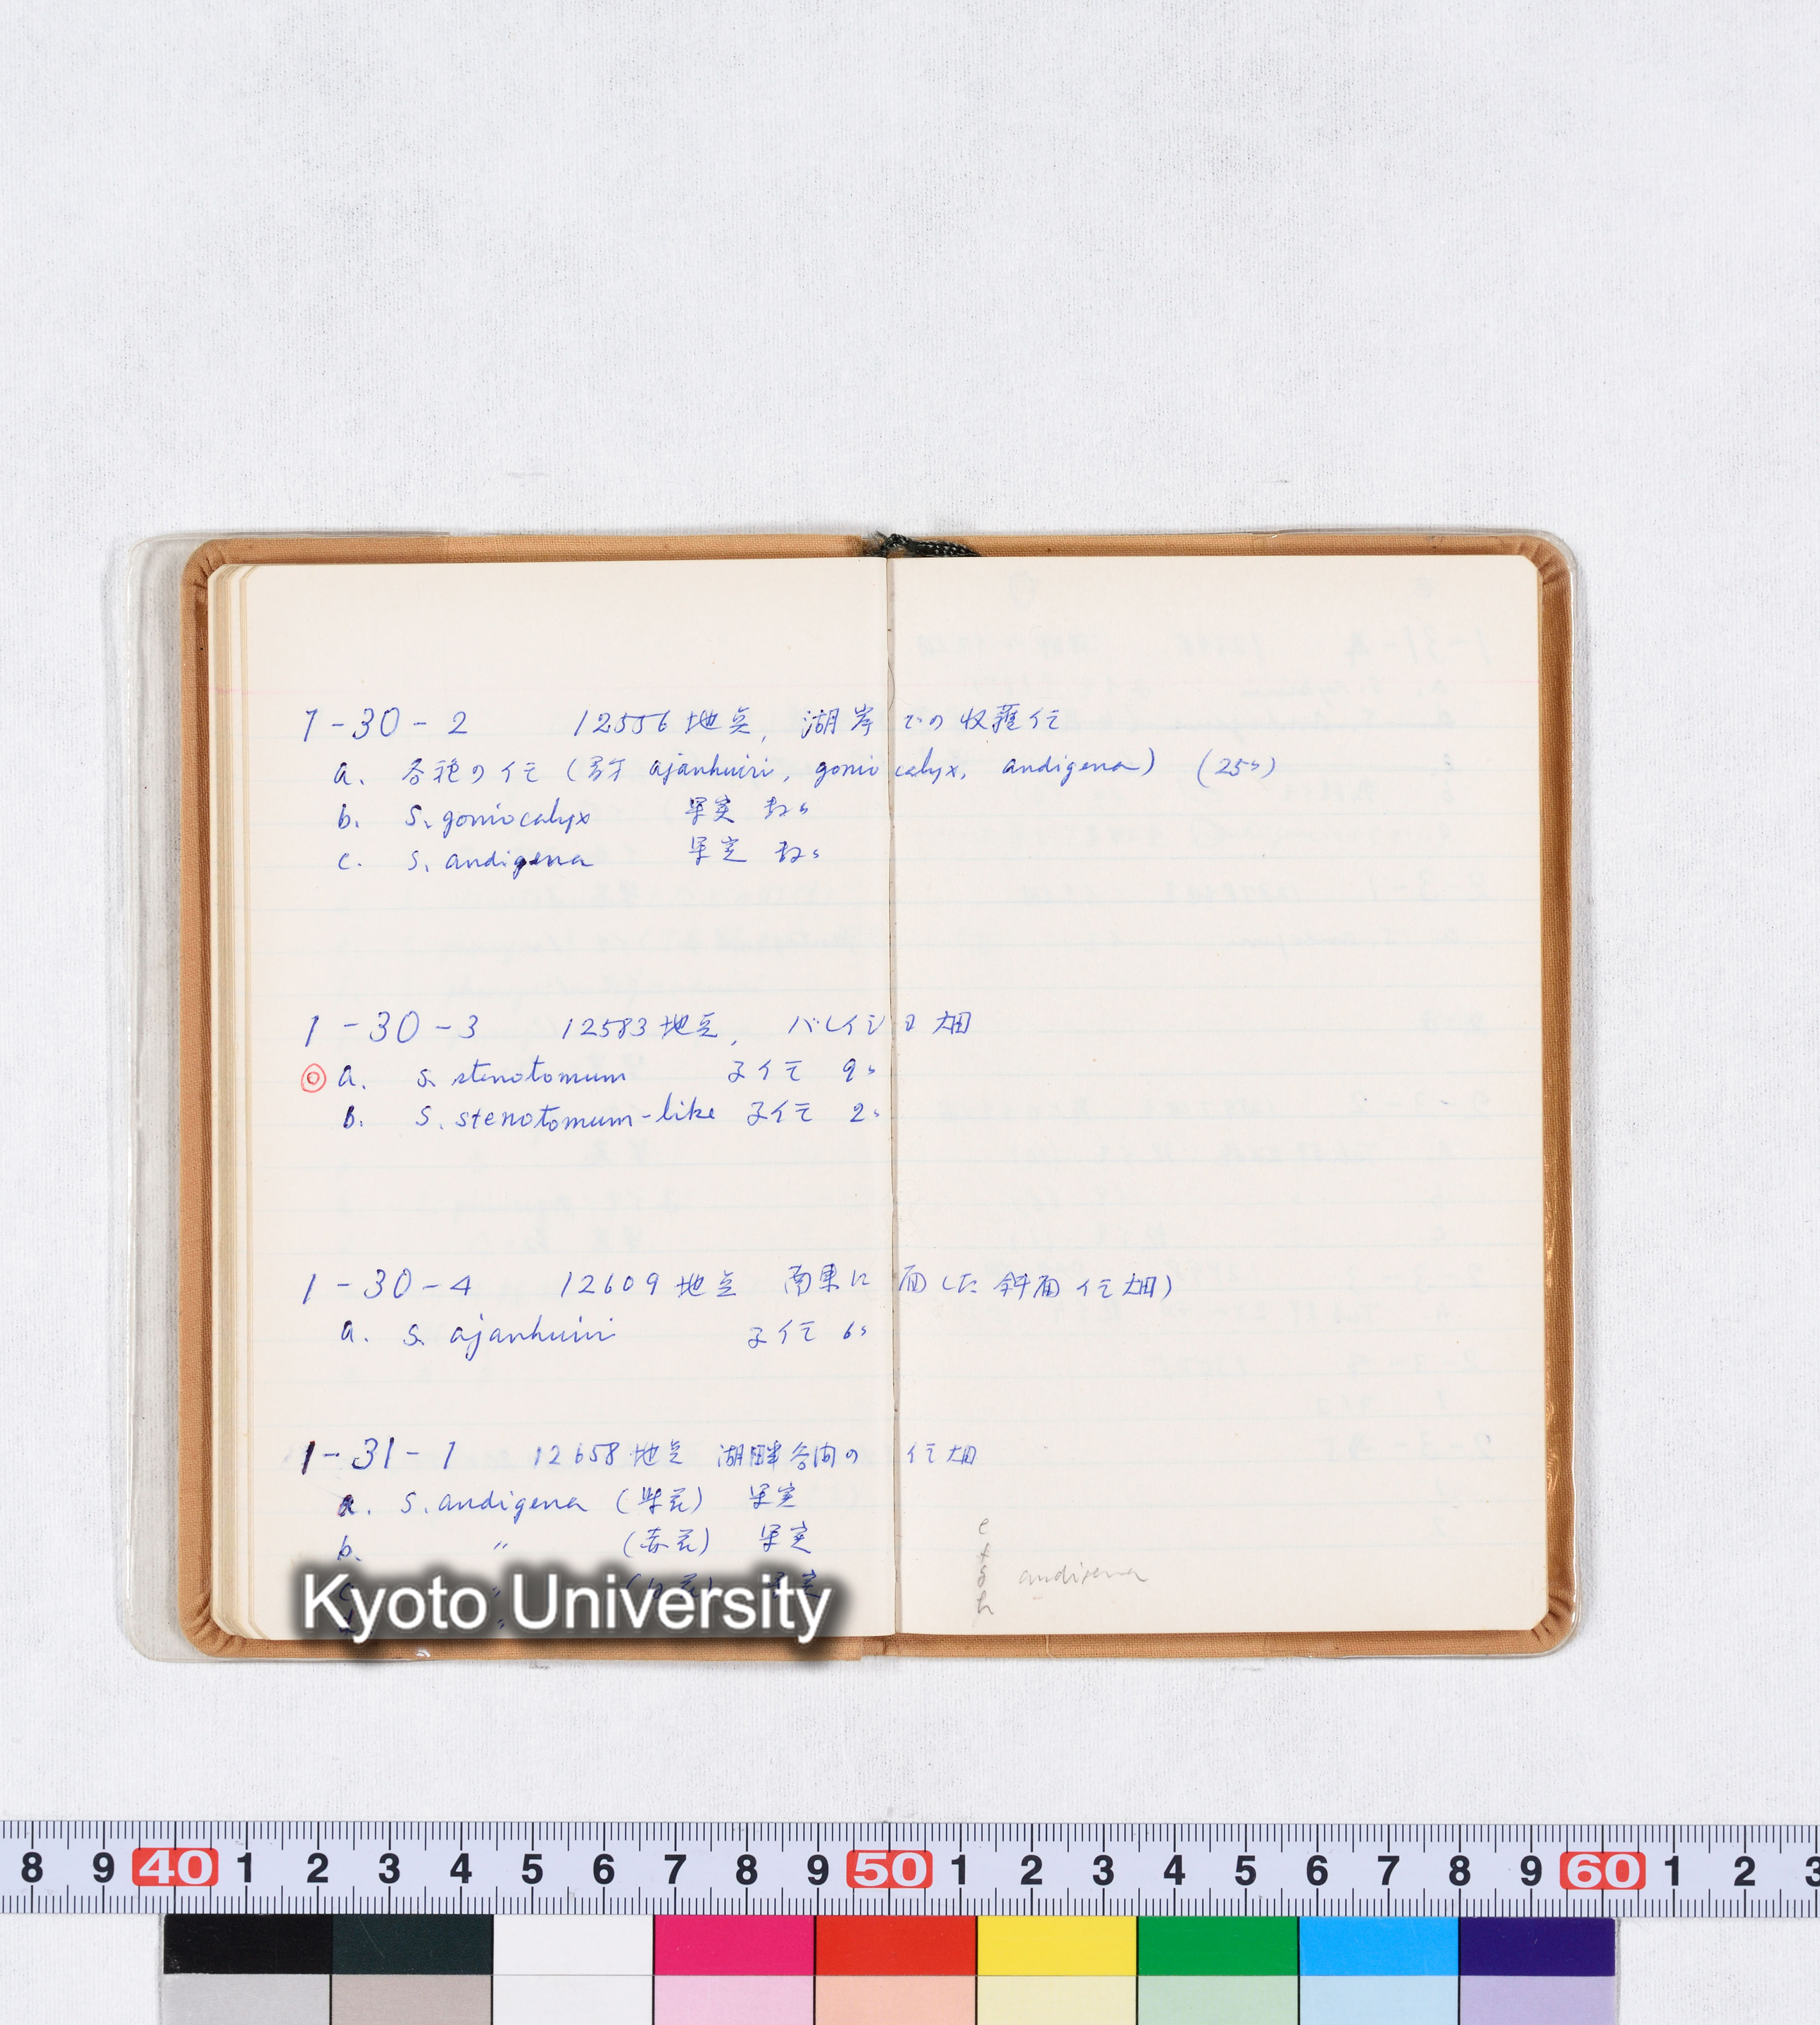 1-30-2 12556地点, 湖岸での収穫イモ
a. 各種のイモ (多分 ajanhuiri, goniocalyx, andigena) (25ヶ)
b. S. goniocalyx 果実 数ヶ
c. S. andigena 果実 数ヶ
1-30-3 12583地点, バレイショ畑
◎ a. S. stenotomum 子イモ 9ヶ
b. S. stenotomum-like 子イモ 2ヶ
1-30-4 12609地点 南東に面した斜面イモ畑)
a. S. ajanhuiri 子イモ 6ヶ
1-31-1 12658地点 湖畔谷間のイモ畑
a. S. andigena (紫花) 果実
b. 〃 (赤花) 果実
c. 〃 (白花) 果実
andigena
Kyoto University
8 9 40 1 2 3 4 5 6 7 8 9 50 1 2 3 4 5 6 7 8 9 60 1 2 3